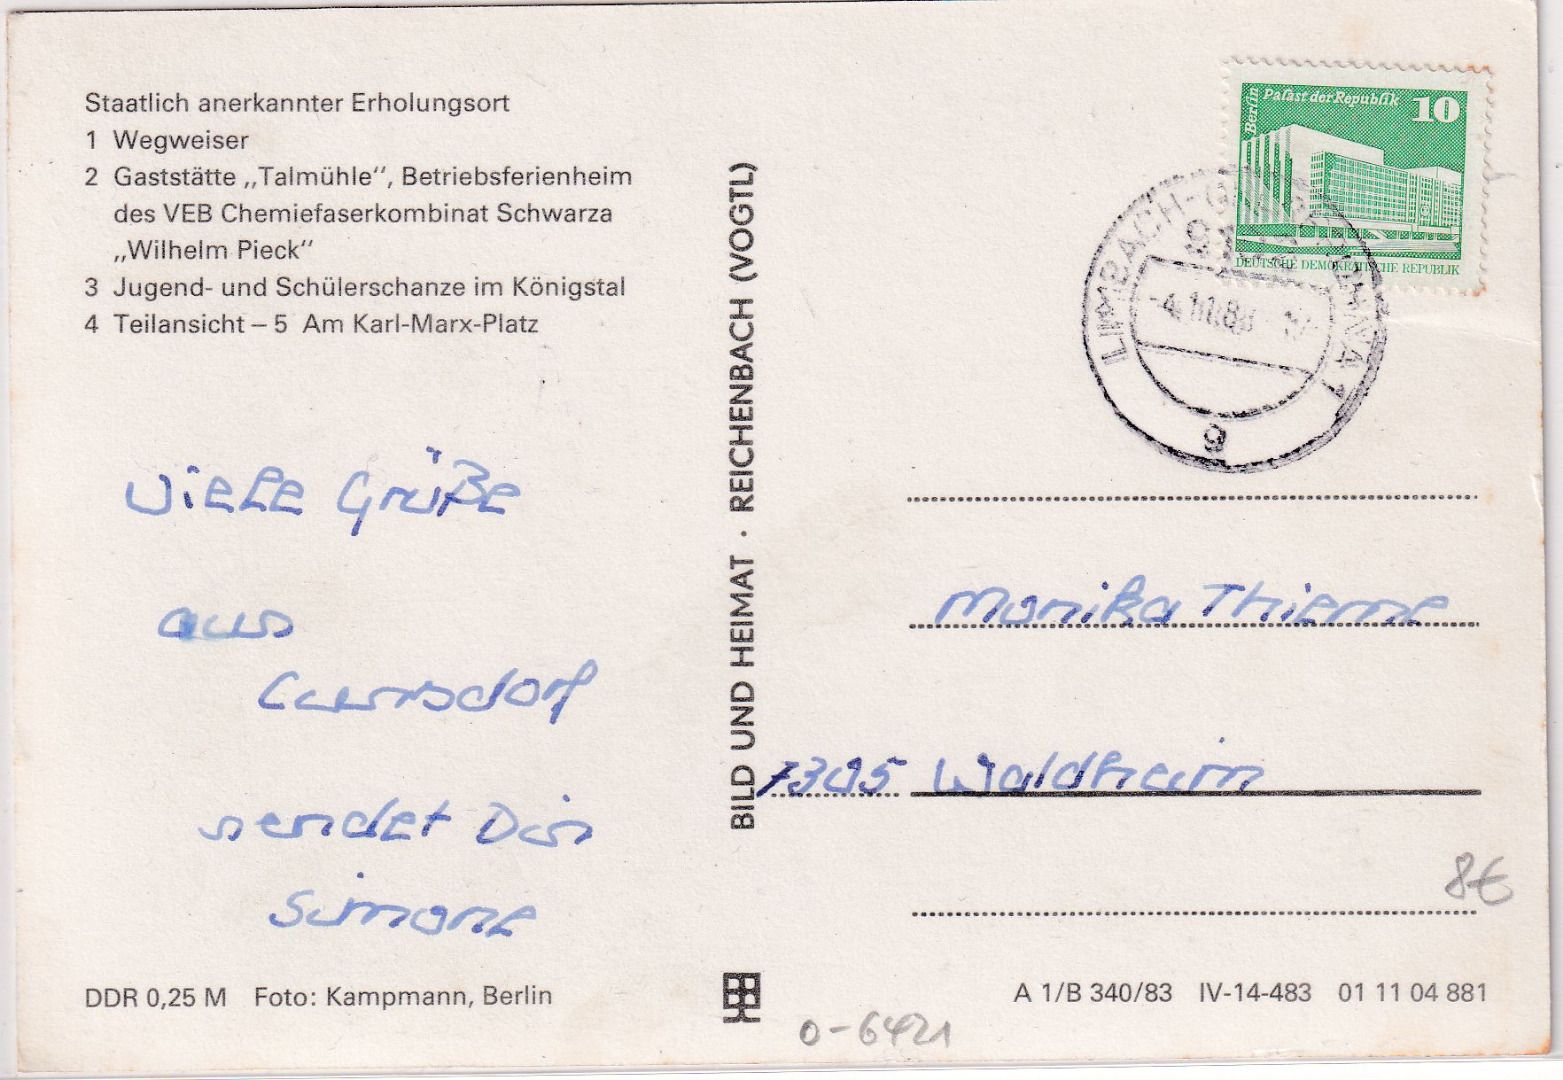 Staatlich anerkannter Erholungsort
1 Wegweiser
2 Gaststätte „Talmühle“, Betriebsferienheim
des VEB Chemiefaserkombinat Schwarza
„Wilhelm Pieck“
3 Jugend- und Schülerschanze im Königstal
4 Teilansicht – 5 Am Karl-Marx-Platz
Viele Grüße
aus
Cursdorf
sendet Dir
Simone
DDR 0,25 M Foto: Kampmann, Berlin
BILD UND HEIMAT · REICHENBACH (VOGTL)
Berlin
Palast der Republik
10
DEUTSCHE DEMOKRATISCHE REPUBLIK
LIMBACH-OBERFROHNA 1
g
Monika Thieme
7305 Waldheim
8€
A 1/B 340/83 IV-14-483 01 11 04 881
0-6421